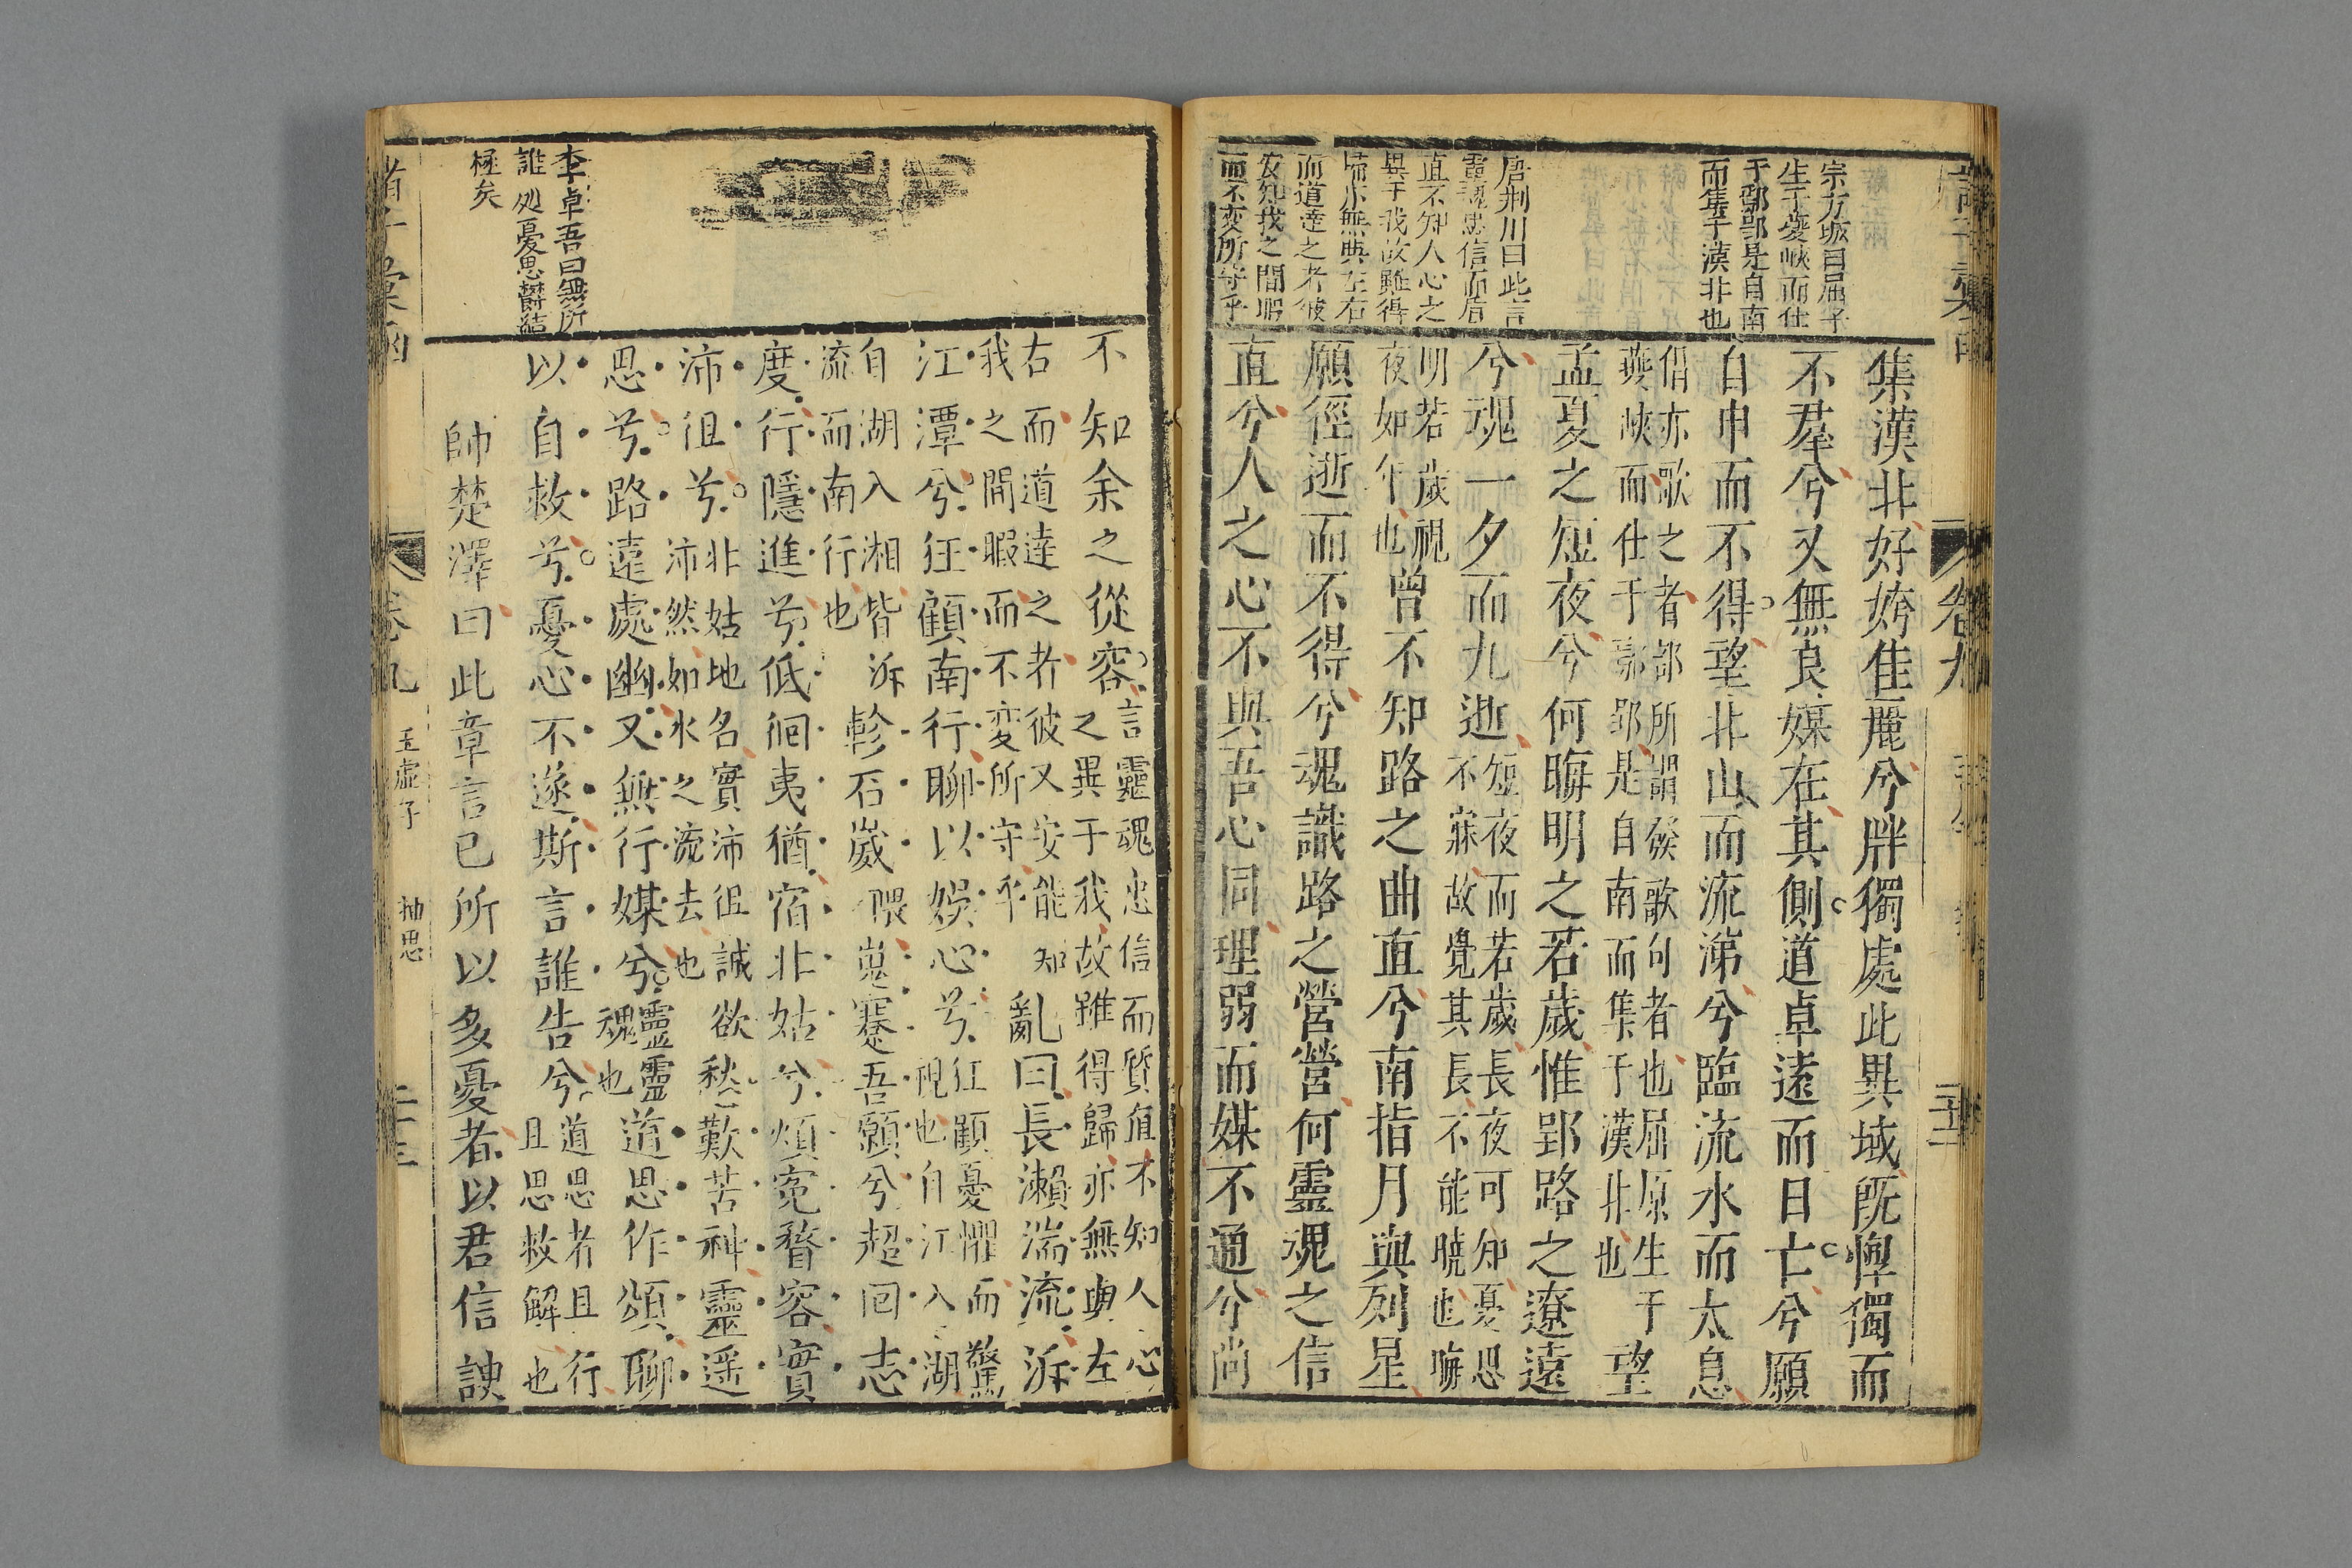 宗方城曰屈子
生于夔峽而仕
于鄢郢是自南
而集于漢非也
唐荊川曰此言
靈魂忠信而質
直不知人心之
異于我故雖得
歸亦無與左右
而道達之者彼
安知我之間暇
而不変所守乎
集漢北好姱佳麗兮牉獨處此異域旣惸獨而
不羣兮又無良媒在其側道卓遠而日亡兮願
自申而不得望北山而流涕兮臨流水而太息
倡亦歌之者卽所謂发歌句者也屈原生于
夔峽而仕于鄢郢是自南而集于漢北也
望
孟夏之短夜兮何晦明之若歲惟郢路之遼遠
兮魂一夕而九逝
短夜而若歲長夜可知憂思
不寐故覺其長不能曉也晦
明若歲視
夜如年也
曾不知路之曲直兮南指月與列星
願徑逝而不得兮魂識路之營營何靈魂之信
直兮人之心不與吾心同理弱而媒不通兮尚
卷九
不知余之從容
言靈魂忠信而質直不知人心
之異于我故雖得歸亦無與左
右而道達之者彼又安能知
我之間暇而不変所守乎
亂曰長瀨湍流泝
江潭兮狂顧南行聊以娛心兮
狂顧憂懼而驚
視也自江入湖
自湖入湘皆泝
流而南行也
軫石崴嵬蹇吾願兮超回志
度行隱進兮低徊夷猶宿北姑兮煩寃瞀容實
沛徂兮
北姑地名實沛徂誠欲
沛然如水之流去也
愁歎苦神靈遥
思兮路遠處幽又無行媒兮
靈靈
魂也
道思作頌聊
以自救兮憂心不遂斯言誰告兮
道思者且行
且思救解也
帥楚澤曰此章言已所以多憂者以君信諛
李卓吾曰無所
誰処憂思欝結
極矣
卷九
玉虛子
抽思
二十三